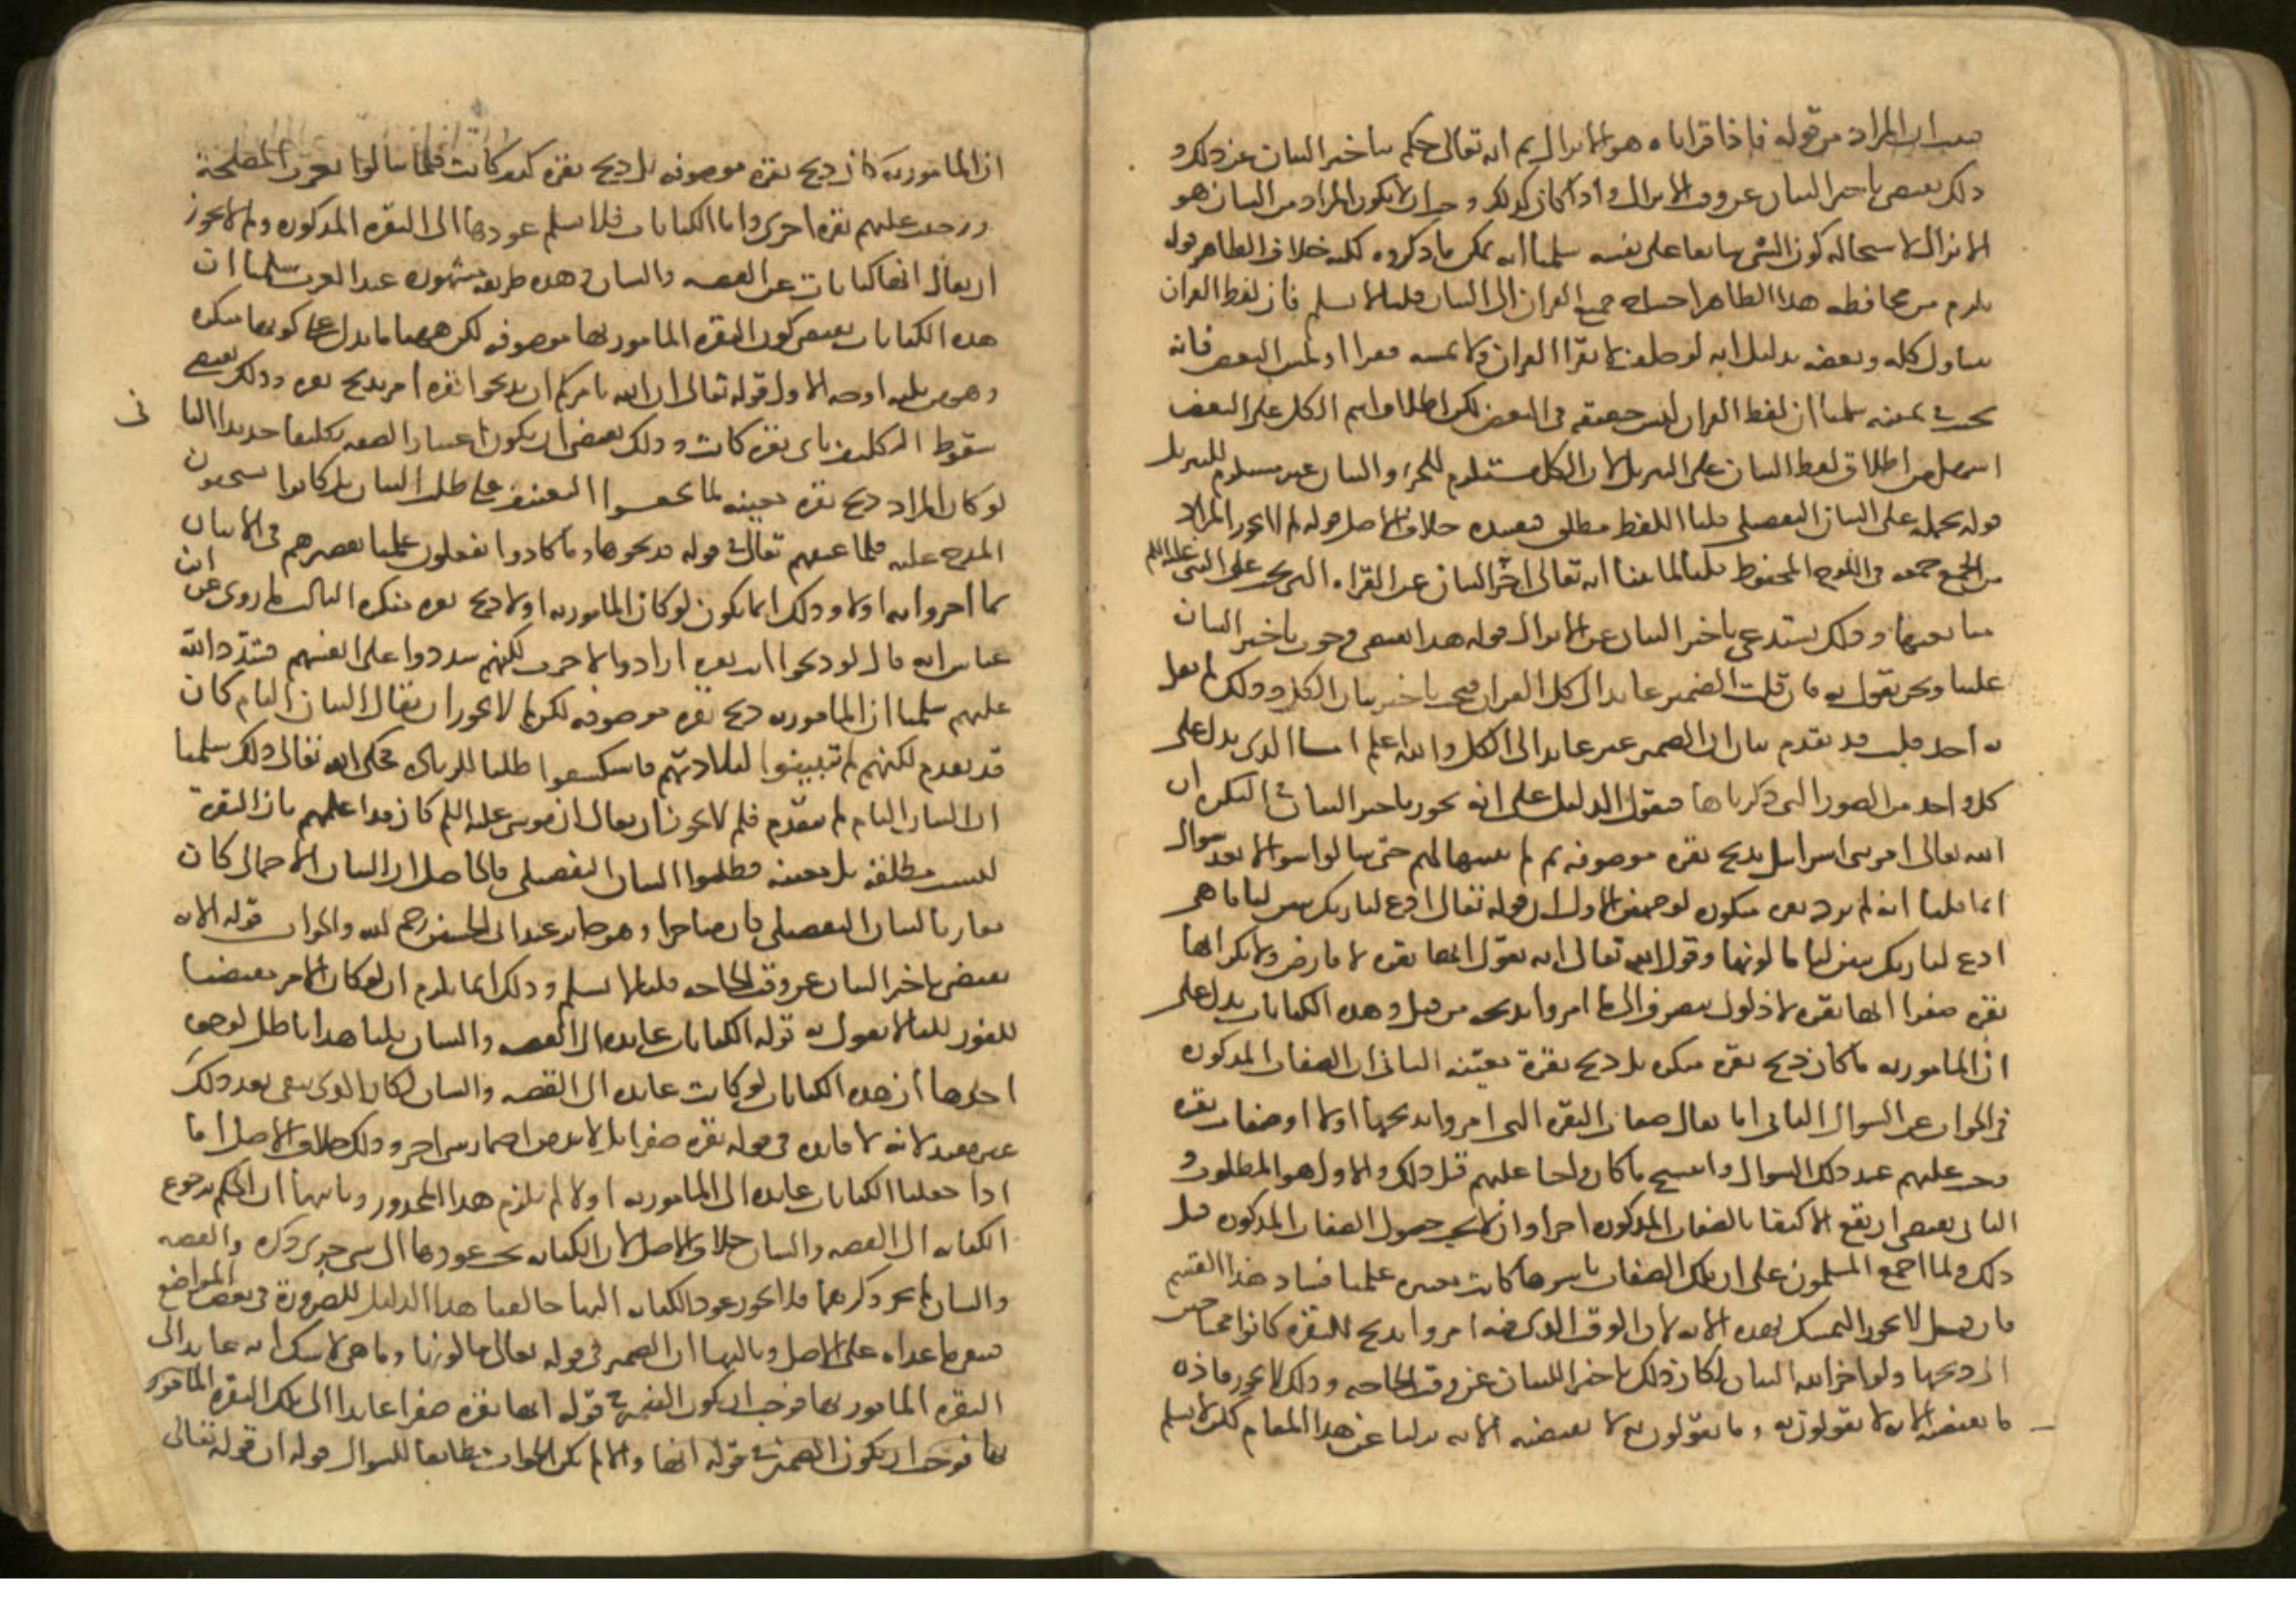 فثبت ان المراد من قوله فاذا قراناه هو الانزال ثم انه تعالى حكم بتاخير البيان عن ذلك و
ذلك يقتضي تاخير البيان عن وقت الانزال واذا كان كذلك وجب ان لا يكون المراد من البيان هو
الانزال لاستحالة كون الشي سابقا على نفسه سلمنا انه يمكن ما ذكروه لكنه خلاف الظاهر قوله
يلزم من محافظه هذا الظاهر احتياج جميع القران الى البيان قلنا لا نسلم فان لفظ القران
يتناول كله وبعضه بدليل انه لو حلف لا يقرا القران ولا يمسه فقرا او لمس البعض فانه
يحنث في يمينه سلمنا ان لفظ القران ليس حقيقه في البعض لكن اطلاق اسم الكل على البعض
اسهل من اطلاق لفظ البيان على التنزيل لان الكل مستلزم للجزء والبيان غير مستلزم للتنزيل
قوله نحمله على البيان التفصيلي قلنا اللفظ مطلق فتقييده خلاف الاصل قوله لم لا يجوز المراد
من الجمع جمعه في اللوح المحفوظ قلنا لما بينا انه تعالى اخر البيان عن القراه التي يجب على النبي عليه السلم
متابعتها وذلك يستدعي تاخير البيان عن الانزال قوله هذا يقتضي وجوب تاخير البيان
علينا ونحن نقول به فان قلت الضمير عايد الى كل القران فيجب تاخير بيان الكل وذلك لم يقل
به احد قلت قد تقدم بيان ان الضمير غير عايد الى الكل والله اعلم اما الذي يدل على
كل واحد من الصور التي ذكرناها فنقول الدليل على انه يجوز تاخير البيان في النكره ان
الله تعالى امر بني اسرايل بذبح بقره موصوفه ثم لم يبينها لهم حتى سالوا سوالا بعد سوال
انما قلنا انه لم يرد بقره منكوره لوجهين الاول ان قوله تعالى ادع لنا ربك يبين لنا ما هي
ادع لنا ربك يبين لنا ما لونها وقول الله تعالى انه يقول انها بقره لا فارض ولا بكر انها
بقره صفرا انها بقره لا ذلول ينصرف الى ما امروا بذبحه من قبل وهذه الكنايات يدل على
ان المامور به ما كان ذبح بقره منكره بل ذبح بقرة معينه الثاني ان الصفات المذكوره
في الجواب عن السوال الثاني اما يقال صفات البقره التي امروا بذبحها اولا او صفات بقره
وجبت عليهم عند ذلك السوال وانتسخ ما كان واجبا عليهم قبل ذلك والاول هو المطلوب و
الثاني يقتضي ان يقع الاكتفا بالصفات المذكوره اخرا وان لا يجب حصول الصفات المذكوره قبل
ذلك ولما اجمع المسلمون على ان تلك الصفات باسرها كانت معتبره علمنا فساد هذا القسم
فان قيل لا يجوز التمسك بهذه الايه لان الوقت الذي فيه امروا بذبح البقره كانوا محتاجين
الى ذبحها ولو اخر الله البيان لكان ذلك تاخير البيان عن وقت الحاجه وذلك لا يجوز فاذن
ما تقتضيه الايه لا تقولون به وما تقولون به لا تقتضيه الايه نزلنا عن هذا المقام لكن لا نسلم
ان المامور به كان ذبح بقره موصوفه بل ذبح بقره كيف كانت فلما سالوا تغيرت المصلحة
ووجبت عليهم بقره اخرى واما الكنايات فلا نسلم عودها الى البقره المذكوره ولم لا يجوز
ان يقال انها كنايات عن القصه والشان وهذه طريقه مشهوره عند العرب سلمنا ان
هذه الكنايات تقتضي كون البقره المامور بها موصوفه لكن ههنا ما يدل على كونها منكره
وهو من ثلثه اوجه الاول قوله تعالى ان الله يامركم ان تذبحوا بقره امر بذبح بقره وذلك يقتضي
سقوط التكليف باي بقره كانت وذلك يقتضي ان يكون اعتبار الصفه تكليفا جديدا الثا ني
لو كان المراد ذبح بقره معينه لما استحقوا التعنيف على طلب البيان بل كانوا يستحقون
المدح عليه فلما عنفهم تعالى في قوله فذبحوها وما كادوا يفعلون علمنا تقصيرهم في الاتيان
بما امروا به اولا وذلك انما يكون لو كان المامور به اولا ذبح بقره منكره الثالث ما روى عن ابن
عباس انه قال لو ذبحوا ايه بقره ارادوا لاجزت لكنهم شددوا على انفسهم فشدد الله
عليهم سلمنا ان المامور به ذبح بقره موصوفه لكن لم لا يجوز ان يقال البيان التام كان
قد تقدم لكنهم لم يتبينوا لبلادتهم فاستكشفوا طلبا للزياده فحكى الله تعالى ذلك سلمنا
ان البيان التام لم يتقدم فلم لا يجوز ان يقال ان موسى عليه السلم كان قد اعلمهم بان البقرة
ليست مطلقه بل معينه فطلبوا البيان التفصيلي فالحاصل ان البيان الاجمالي كان
مقارنا للبيان التفصيلي كان متاخرا وهو جايز عند ابي الحسين رحمه الله والجواب قوله الايه
تقتضي تاخير البيان عن وقت الحاجه قلنا لا نسلم وذلك انما يلزم ان لو كان الامر مقتضيا
للفور لكنا لا نقول به قوله الكنايات عايده الى القصه والشان قلنا هذا باطل لوجوه
احدها ان هذه الكنايات لو كانت عايده الى القصه والشان لكان الذي يبقى بعد ذلك
غير مفيد لانه لا فايده في قوله بقره صفرا بل لا بد من اضمار شي اخر وذلك خلاف الاصل اما
اذا جعلنا الكنايات عايده الى المامور به اولا لم يلزم هذا المحذور وثانيها ان الحكم برجوع
الكنايه الى القصه والشان خلاف الاصل لان الكنايه يجب عودها الى شي جرى ذكره والقصه
والشان لم يجر ذكرهما فلا يجوز عود الكنايه اليها خالفنا هذا الدليل للضرورة في بعض المواضع
فيبقى ما عداه على الاصل وثالثها ان الضمير في قوله تعالى ما لونها وما هي لا شك انه عايد الى
البقره المامور بها فوجب ان يكون الضمير في قوله انها بقره صفرا عايدا الى تلك البقره المامور
بها فوجب ان يكون الضمير في قوله انها والا لم يكن الجواب مطابقا للسوال قوله ان قوله تعالى